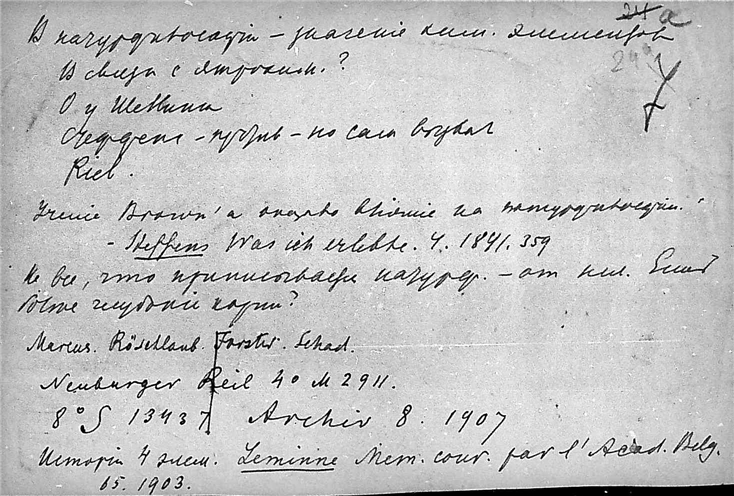 24 a
В натурфилософии – значение хим. элементов
24а
В связи с ятрохим.?
7
О у Шеллинга
Стеффенс – против – но сам
Reil.
Учение Brown'а оказало влияние на натурфилософии.
– Steffens Was ich erlebte. 4. 1841. 359
Не все, что приписывается натурф. – от нея.
более глубокие корни?
Marcus. Röschlaub. Forster. Schad.
Neuburger Reil 4° M 2911.
8° S 13437 Archiv 8. 1907
История 4 элем. Leminne Mem. cour. par l'Acad. Belg.
65. 1903.